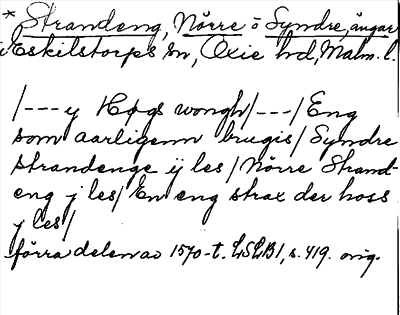 * Strandeng, Nörre o Syndre, ängar
i Eskilstorps sn, Oxie hd, Malm. l.
/---y Høgs wongh/---/Eng
som aarligenn brugis/Syndre
strandenge ij les/Nörre Strand-
eng j les/En eng strax der hoss
j les/
förra delen av 1570-t. LSLB1, s. 419. orig.